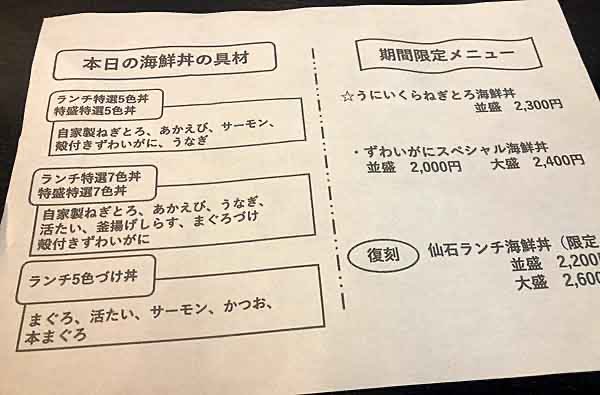 本日の海鮮丼の具材
ランチ特選5色丼
特盛特選5色丼
自家製ねぎとろ、あかえび、サーモン、
殻付きずわいがに、うなぎ
ランチ特選7色丼
特盛特選7色丼
自家製ねぎとろ、あかえび、うなぎ、
活たい、釜揚げしらす、まぐろづけ
殻付きずわいがに
ランチ5色づけ丼
まぐろ、活たい、サーモン、かつお、
本まぐろ
期間限定メニュー
☆うにいくらねぎとろ海鮮丼
並盛 2,300円
・ずわいがにスペシャル海鮮丼
並盛 2,000円 大盛 2,400円
復刻
仙石ランチ海鮮丼（限定
並盛 2,200円
大盛 2,600